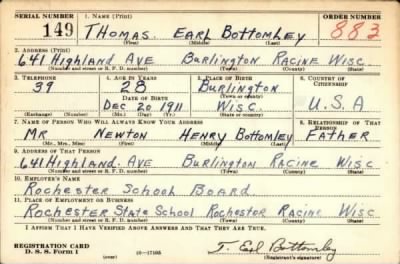 SERIAL NUMBER 1. NAME (Print) ORDER NUMBER
149 THOMAS EARL BOTTOMLEY 883
(First) (Middle) (Last)
2. ADDRESS (Print)
641 HIGHLAND AVE BURLINGTON RACINE WISC.
(Number and street or R. F. D. number) (Town) (County) (State)
3. TELEPHONE 4. AGE IN YEARS 5. PLACE OF BIRTH 6. COUNTRY OF CITIZENSHIP
39 28 BURLINGTON
DATE OF BIRTH (Town or county)
DEC 20 1911 WISC. U.S.A
(Exchange) (Number) (Mo.) (Day) (Yr.) (State or country)
7. NAME OF PERSON WHO WILL ALWAYS KNOW YOUR ADDRESS 8. RELATIONSHIP OF THAT PERSON
MR NEWTON HENRY BOTTOMLEY FATHER
(Mr., Mrs., Miss) (First) (Middle) (Last)
9. ADDRESS OF THAT PERSON
641 HIGHLAND. AVE BURLINGTON RACINE WISC
(Number and street or R. F. D. number) (Town) (County) (State)
10. EMPLOYER'S NAME
ROCHESTER SCHOOL BOARD.
11. PLACE OF EMPLOYMENT OR BUSINESS
ROCHESTER STATE SCHOOL ROCHESTER RACINE WISC
(Number and street or R. F. D. number) (Town) (County) (State)
I AFFIRM THAT I HAVE VERIFIED ABOVE ANSWERS AND THAT THEY ARE TRUE.
REGISTRATION CARD
D. S. S. Form 1 (over) T. Earl Bottomley
(Registrant's signature)